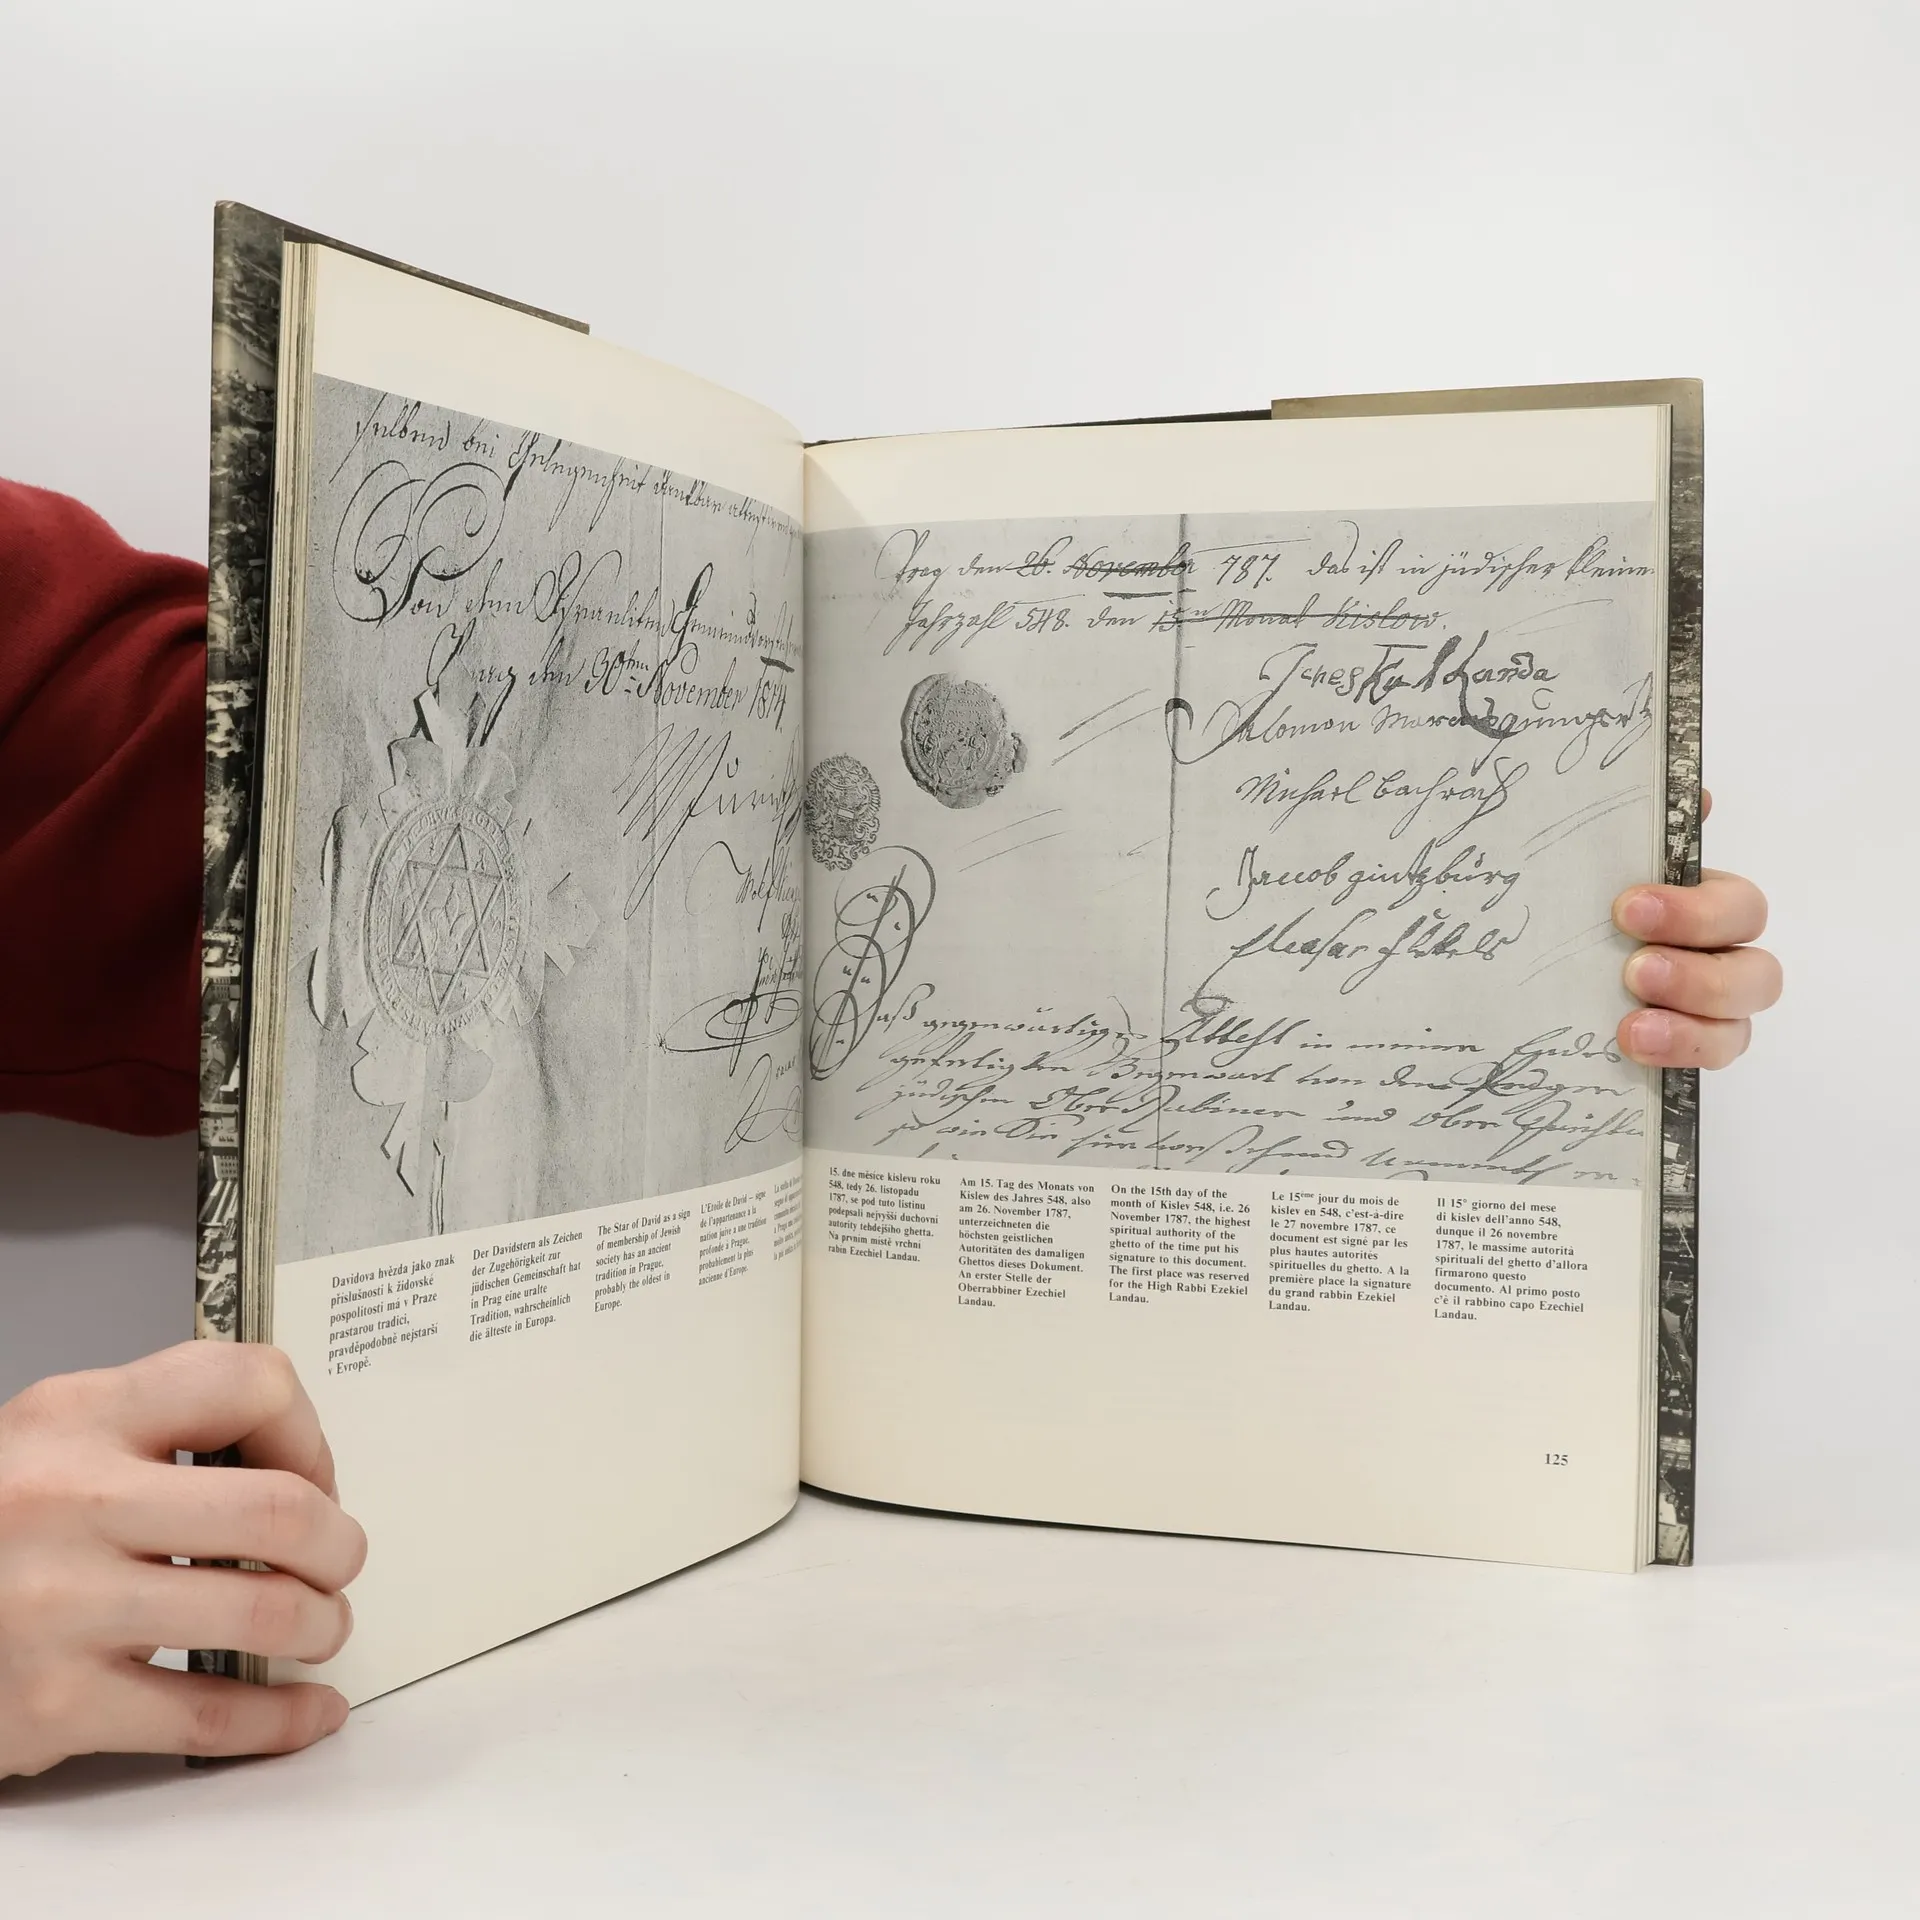 selben bei Gelegenheit dankbar
Von dem Israeliten
Prag den 30ten November 1814
Davidova hvězda jako znak
příslušnosti k židovské
pospolitosti má v Praze
prastarou tradici,
pravděpodobně nejstarší
v Evropě.
Der Davidstern als Zeichen
der Zugehörigkeit zur
jüdischen Gemeinschaft hat
in Prag eine uralte
Tradition, wahrscheinlich
die älteste in Europa.
The Star of David as a sign
of membership of Jewish
society has an ancient
tradition in Prague,
probably the oldest in
Europe.
L'Etoile de David — signe
de l'appartenance à la
nation juive a une tradition
profonde à Prague,
probablement la plus
ancienne d'Europe.
Prag den 26. November 787. das ist in jüdischer kleinen
Jahrzahl 548. den 15ten Monat Kislow.
Landa
Salomon
Michael Bachrach
Jacob gintzbürg
Eleasar
Daß gegenwärtiges Attest in meiner Endes
gefertigten Gegenwart von dem Prager
jüdischen Ober Rabiner und Ober
so wie Sie hier
15. dne měsíce kislevu roku
548, tedy 26. listopadu
1787, se pod tuto listinu
podepsali nejvyšší duchovní
autority tehdejšího ghetta.
Na prvním místě vrchní
rabín Ezechiel Landau.
Am 15. Tag des Monats von
Kislew des Jahres 548, also
am 26. November 1787,
unterzeichneten die
höchsten geistlichen
Autoritäten des damaligen
Ghettos dieses Dokument.
An erster Stelle der
Oberrabbiner Ezechiel
Landau.
On the 15th day of the
month of Kislev 548, i.e. 26
November 1787, the highest
spiritual authority of the
ghetto of the time put his
signature to this document.
The first place was reserved
for the High Rabbi Ezekiel
Landau.
Le 15ème jour du mois de
kislev en 548, c'est-à-dire
le 27 novembre 1787, ce
document est signé par les
plus hautes autorités
spirituelles du ghetto. A la
première place la signature
du grand rabbin Ezekiel
Landau.
Il 15° giorno del mese
di kislev dell'anno 548,
dunque il 26 novembre
1787, le massime autorità
spirituali del ghetto d'allora
firmarono questo
documento. Al primo posto
c'è il rabbino capo Ezechiel
Landau.
125